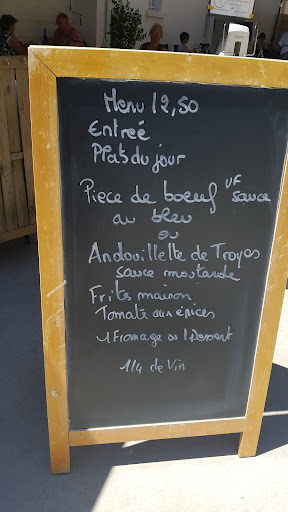 Menu 12,50
Entrée
Plats du jour
Piece de boeuf VF sauce
au bleu
ou
Andouillette de Troyes
sauce moutarde
Frites maison
Tomate aux épices
1 Fromage ou 1 dessert
1/4 de Vin